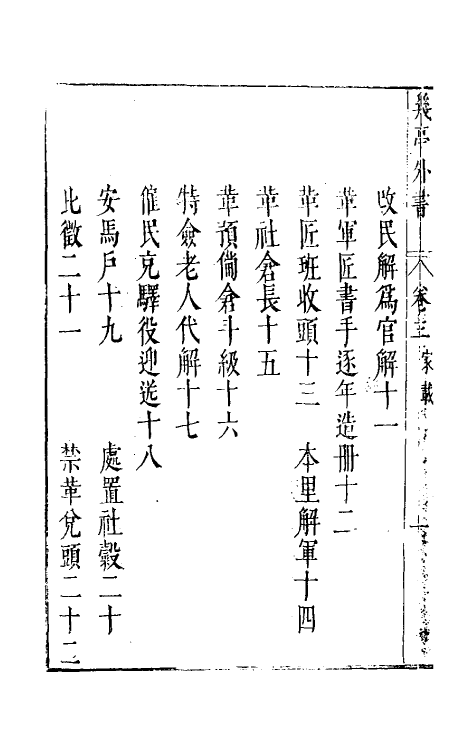 幾亭外書 卷三 家載
改民解爲官解十一
革軍匠書手逐年造冊十二
革匠班收頭十三 本里解軍十四
革社倉長十五
革預備倉斗級十六
特僉老人代解十七
僱民充驛役迎送十八
安馬戶十九 處置社穀二十
比徵二十一 禁革兌頭二十二